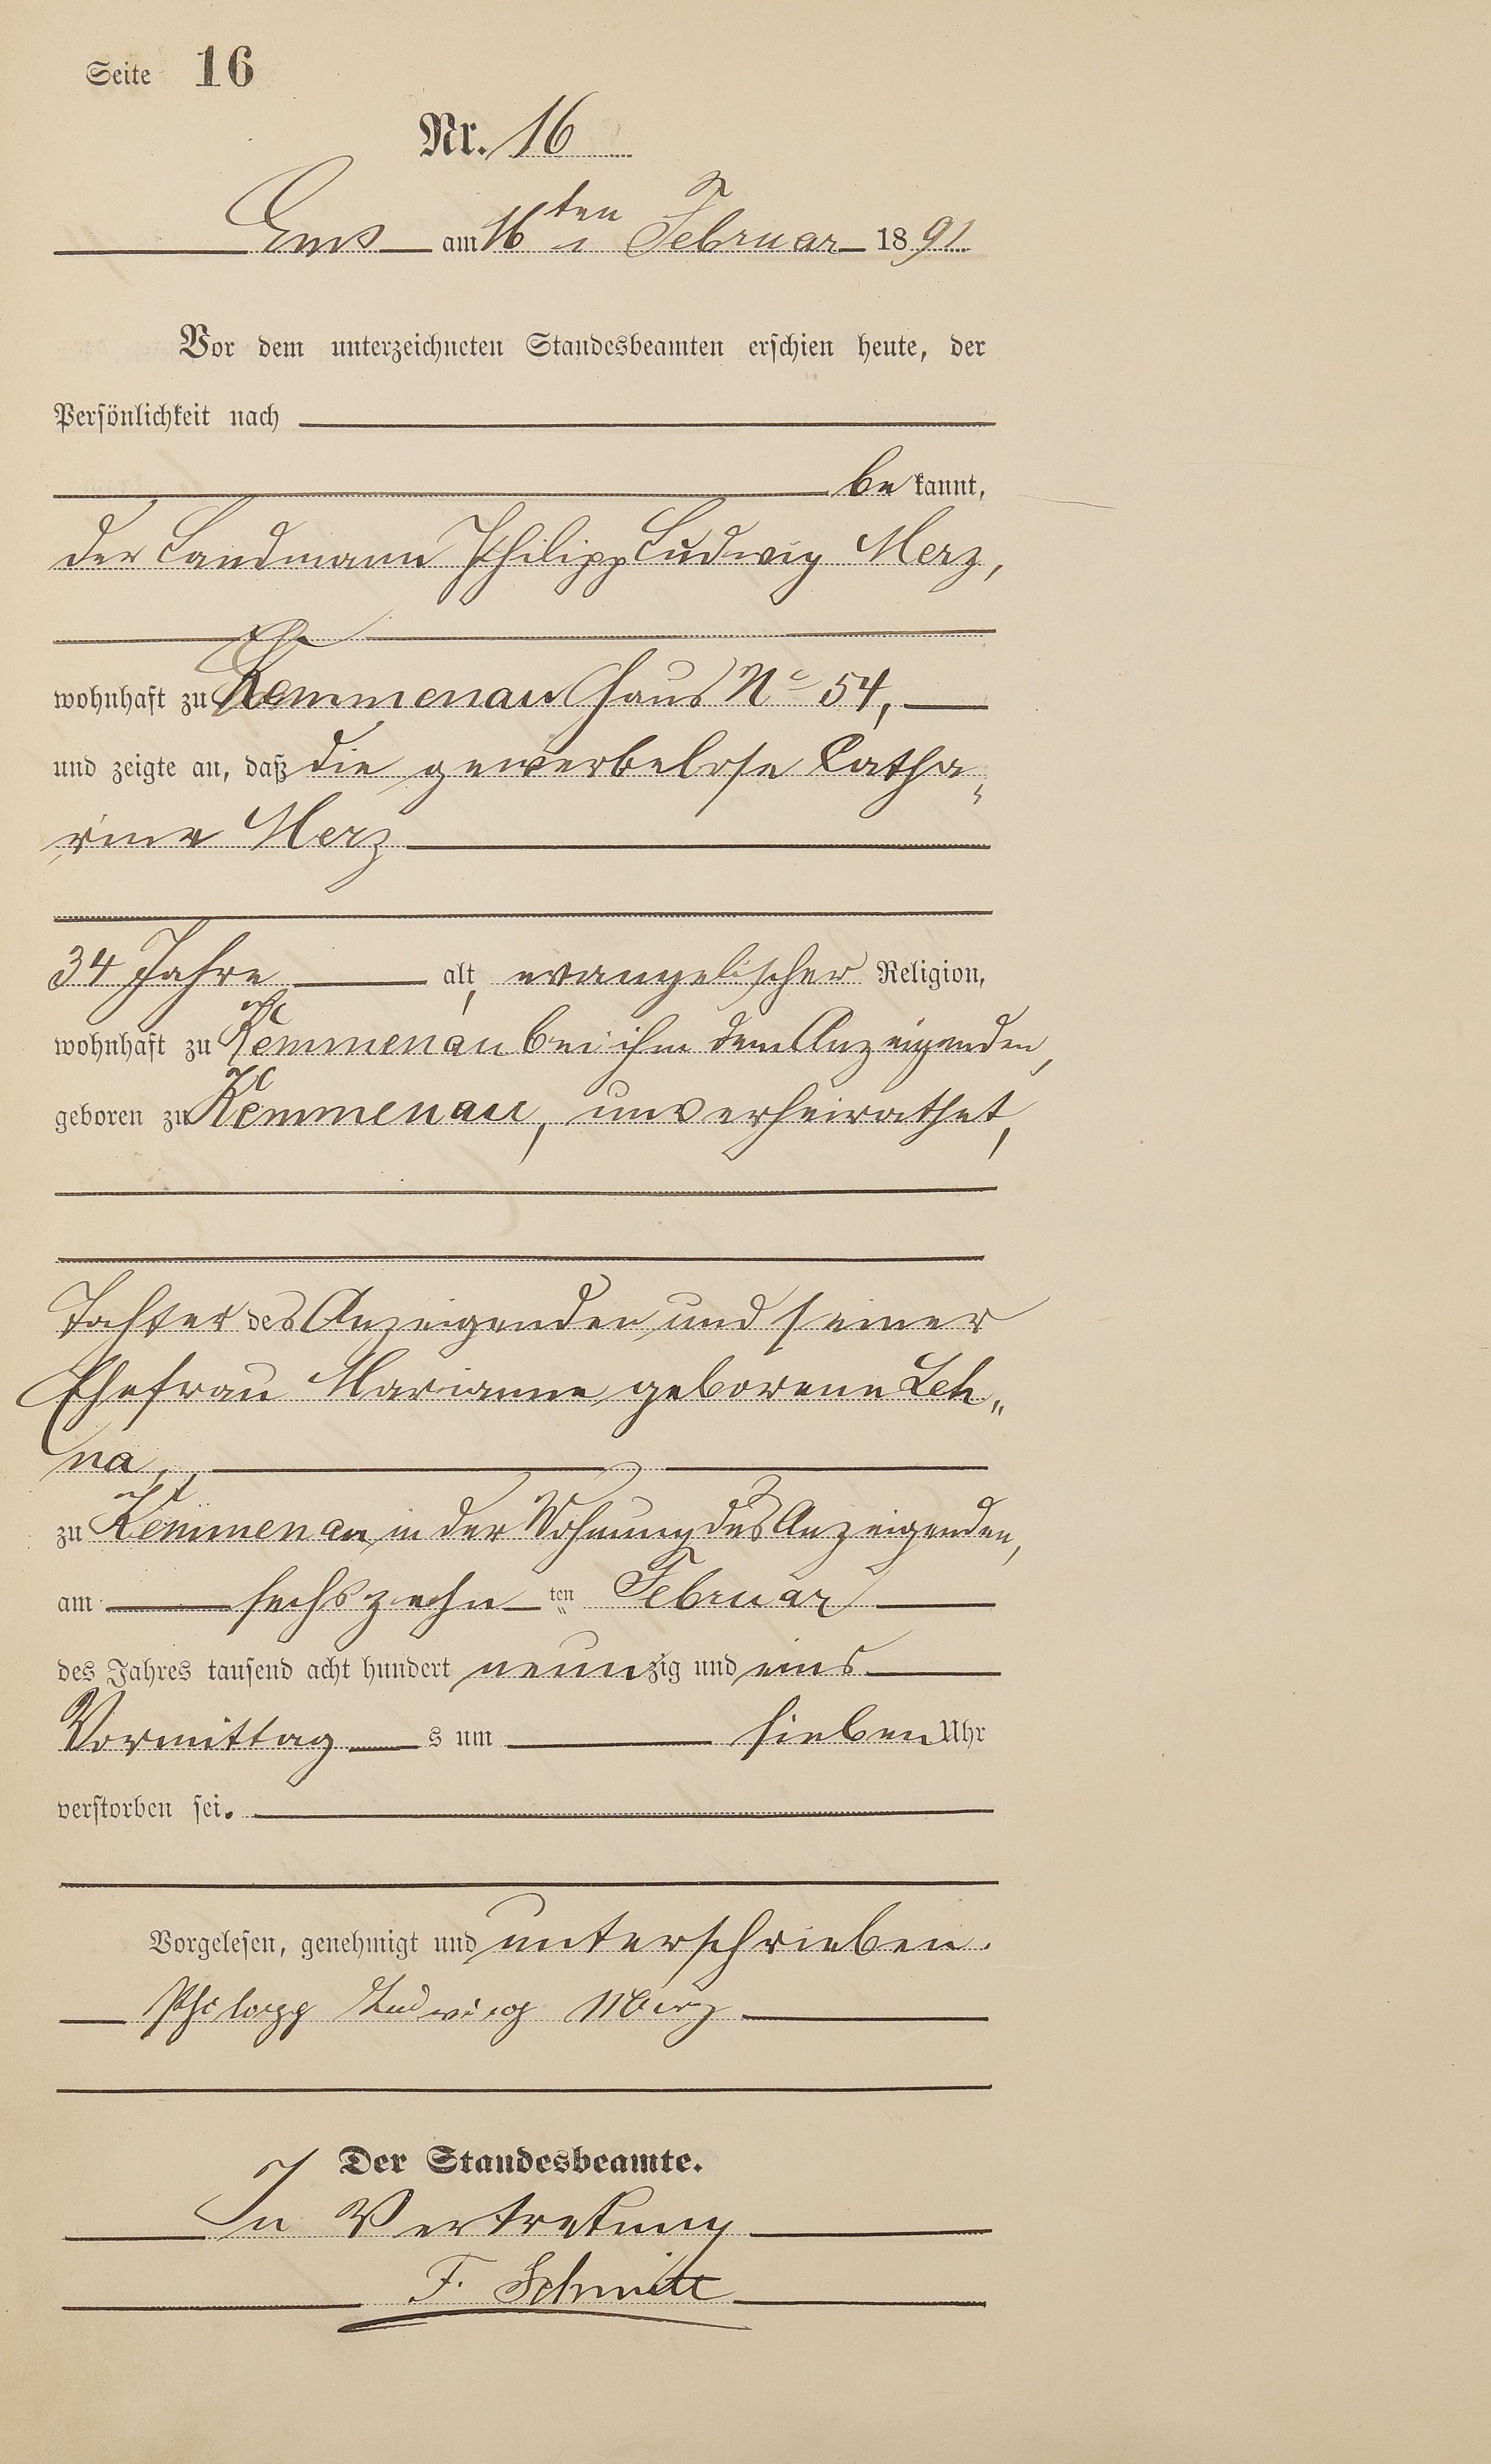 Seite 16
Nr. 16
Ems am 16ten Februar 1891
Vor dem unterzeichneten Standesbeamten erschien heute, der
Persönlichkeit nach
bekannt,
der Landmann Philipp Ludwig Merz,
wohnhaft zu Kemmenau Haus No 54,
und zeigte an, daß die gewerbelose Catha„
rine Merz
34 Jahre alt, evangelischer Religion,
wohnhaft zu Kemmenau bei ihm dem Anzeigenden,
geboren zu Kemmenau, unverheirathet,
Tochter des Anzeigenden und seiner
Ehefrau Marianne geborene Leh„
na,
zu Kemmenau in der Wohnung des Anzeigenden,
am sechszehnten Februar
des Jahres tausend acht hundert neunzig und eins
Vormittags um sieben Uhr
verstorben sei.
Vorgelesen, genehmigt und unterschrieben.
Philipp Ludwig Merz
Der Standesbeamte.
In Vertretung
F. Schmitt